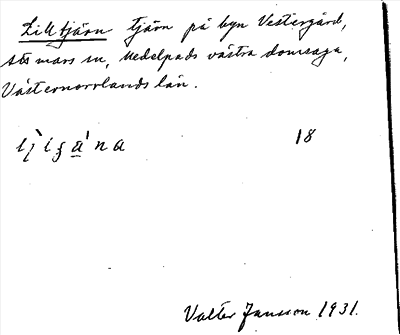 Lilltjärn tjärn på byn Västergård,
Medelpads västra domsaga,
Västernorrlands län.
18
Valter Jansson 1931.